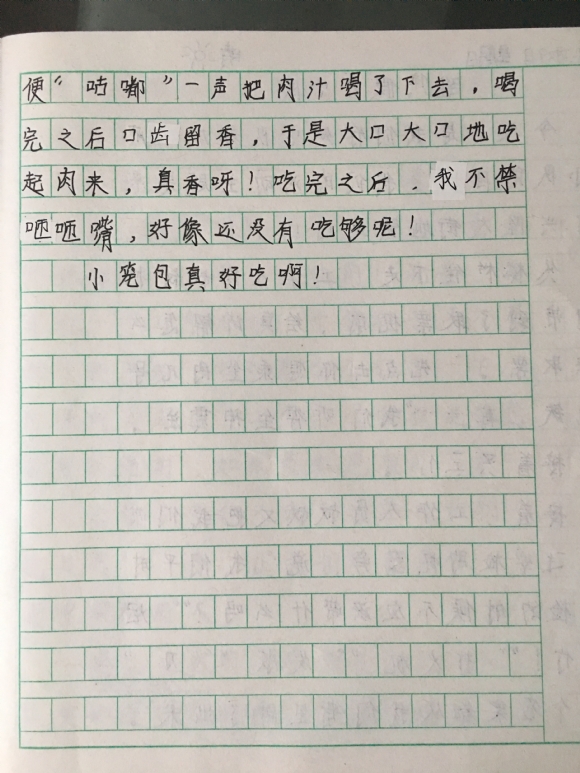 便“咕嘟”一声把肉汁喝了下去，喝
完之后口齿留香，于是大口大口地吃
起肉来，真香呀！吃完之后，我不禁
咂咂嘴，好像还没有吃够呢！
小笼包真好吃啊！